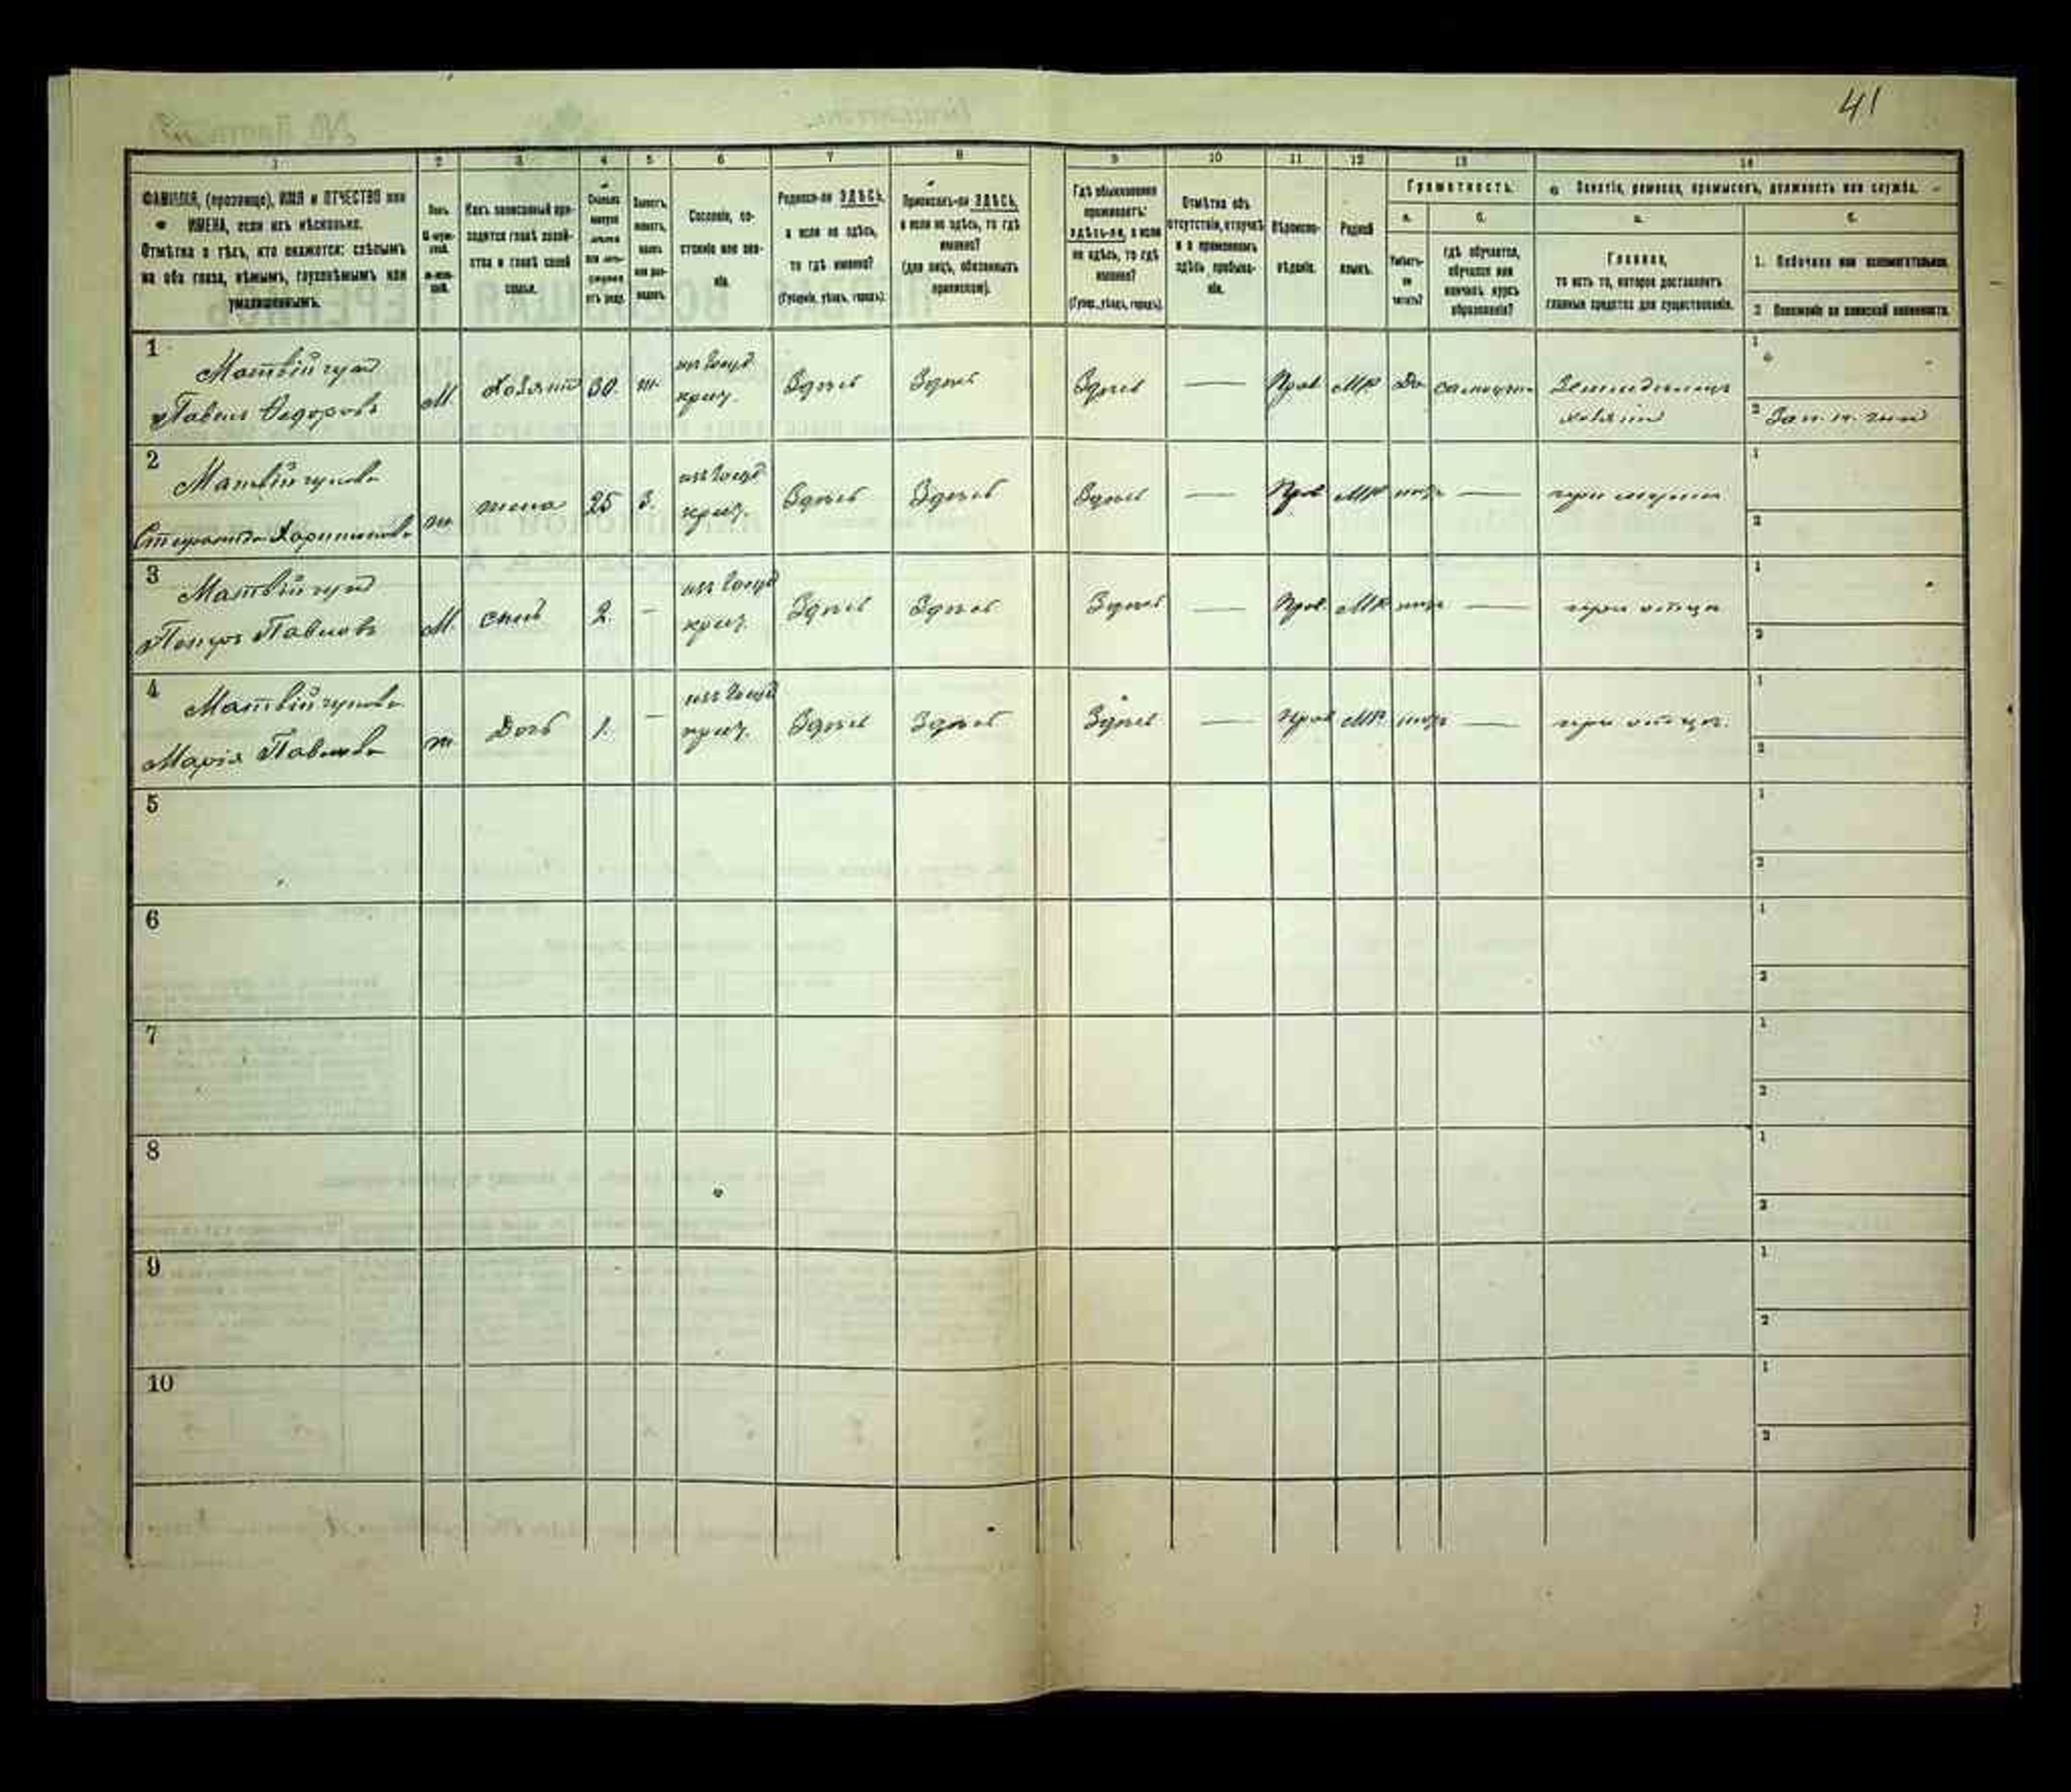 41
1 2 3 4 5 6 7 8 9 10 11 12 13 14
ФАМИЛІЯ, (прозвище), ИМЯ и ОТЧЕСТВО или
ИМЕНА, если ихъ нѣсколько.
Отмѣтка о тѣхъ, кто окажется: слѣпымъ
на оба глаза, нѣмымъ, глухонѣмымъ или
умалишеннымъ.
Какъ записанный при-
ходится главѣ хозяй-
ства и главѣ своей
семьи.
Сословіе, со-
стояніе или зва-
ніе.
Родился-ли ЗДѢСЬ,
а если не здѣсь,
то гдѣ именно?
(Губернія, уѣздъ, городъ).
Приписанъ-ли ЗДѢСЬ,
а если не здѣсь, то гдѣ
именно?
(для лицъ, обязанныхъ
припискою).
Гдѣ обыкновенно
проживаетъ:
здѣсь-ли, а если
не здѣсь, то гдѣ
именно?
(Губ., уѣздъ, городъ).
Отмѣтка объ
отсутствіи, отлучкѣ
и о временномъ
здѣсь пребыва-
ніи.
Вѣроиспо-
вѣданіе.
Родной
языкъ.
Грамотность.
а. б.
Умѣетъ-
ли
читать?
гдѣ обучается,
обучался или
кончилъ курсъ
образованія?
Занятіе, ремесло, промыселъ, должность или служба.
а. б.
Главное,
то есть то, которое доставляетъ
главныя средства для существованія.
1. Побочное или вспомогательное.
2 Положеніе по воинской повинности.
1 Матвійчукъ
Павелъ Ѳедоровъ М. хозяинъ 30. ж. изъ госуд. крест. Здѣсь Здѣсь Здѣсь — Прав. МР. Да Земледѣлецъ
хозяинъ
2 Матвійчукова
Харитонова ж. жена 25 З. изъ госуд. крест. Здѣсь Здѣсь Здѣсь — Прав МР нѣтъ — при мужѣ
3 Матвійчукъ
Петръ Павловъ М. сынъ 2. — изъ госуд. крест. Здѣсь Здѣсь Здѣсь — Прав. МР нѣтъ — при отцѣ
4 Матвійчукова
Марія Павлова ж. Дочь 1. — изъ госуд. крест. Здѣсь Здѣсь Здѣсь — Прав МР. нѣтъ — при отцѣ.
5
6
7
8
9
10